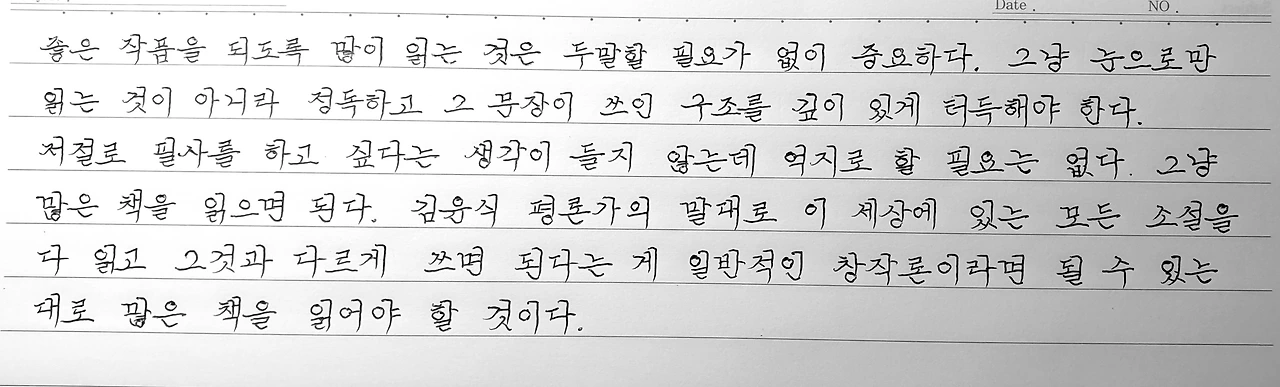 Date .
NO .
좋은 작품을 되도록 많이 읽는 것은 두말할 필요가 없이 중요하다. 그냥 눈으로만
읽는 것이 아니라 정독하고 그 문장이 쓰인 구조를 깊이 있게 터득해야 한다.
저절로 필사를 하고 싶다는 생각이 들지 않는데 억지로 할 필요는 없다. 그냥
많은 책을 읽으면 된다. 김윤식 평론가의 말대로 이 세상에 있는 모든 소설을
다 읽고 그것과 다르게 쓰면 된다는 게 일반적인 창작론이라면 될 수 있는
대로 많은 책을 읽어야 할 것이다.